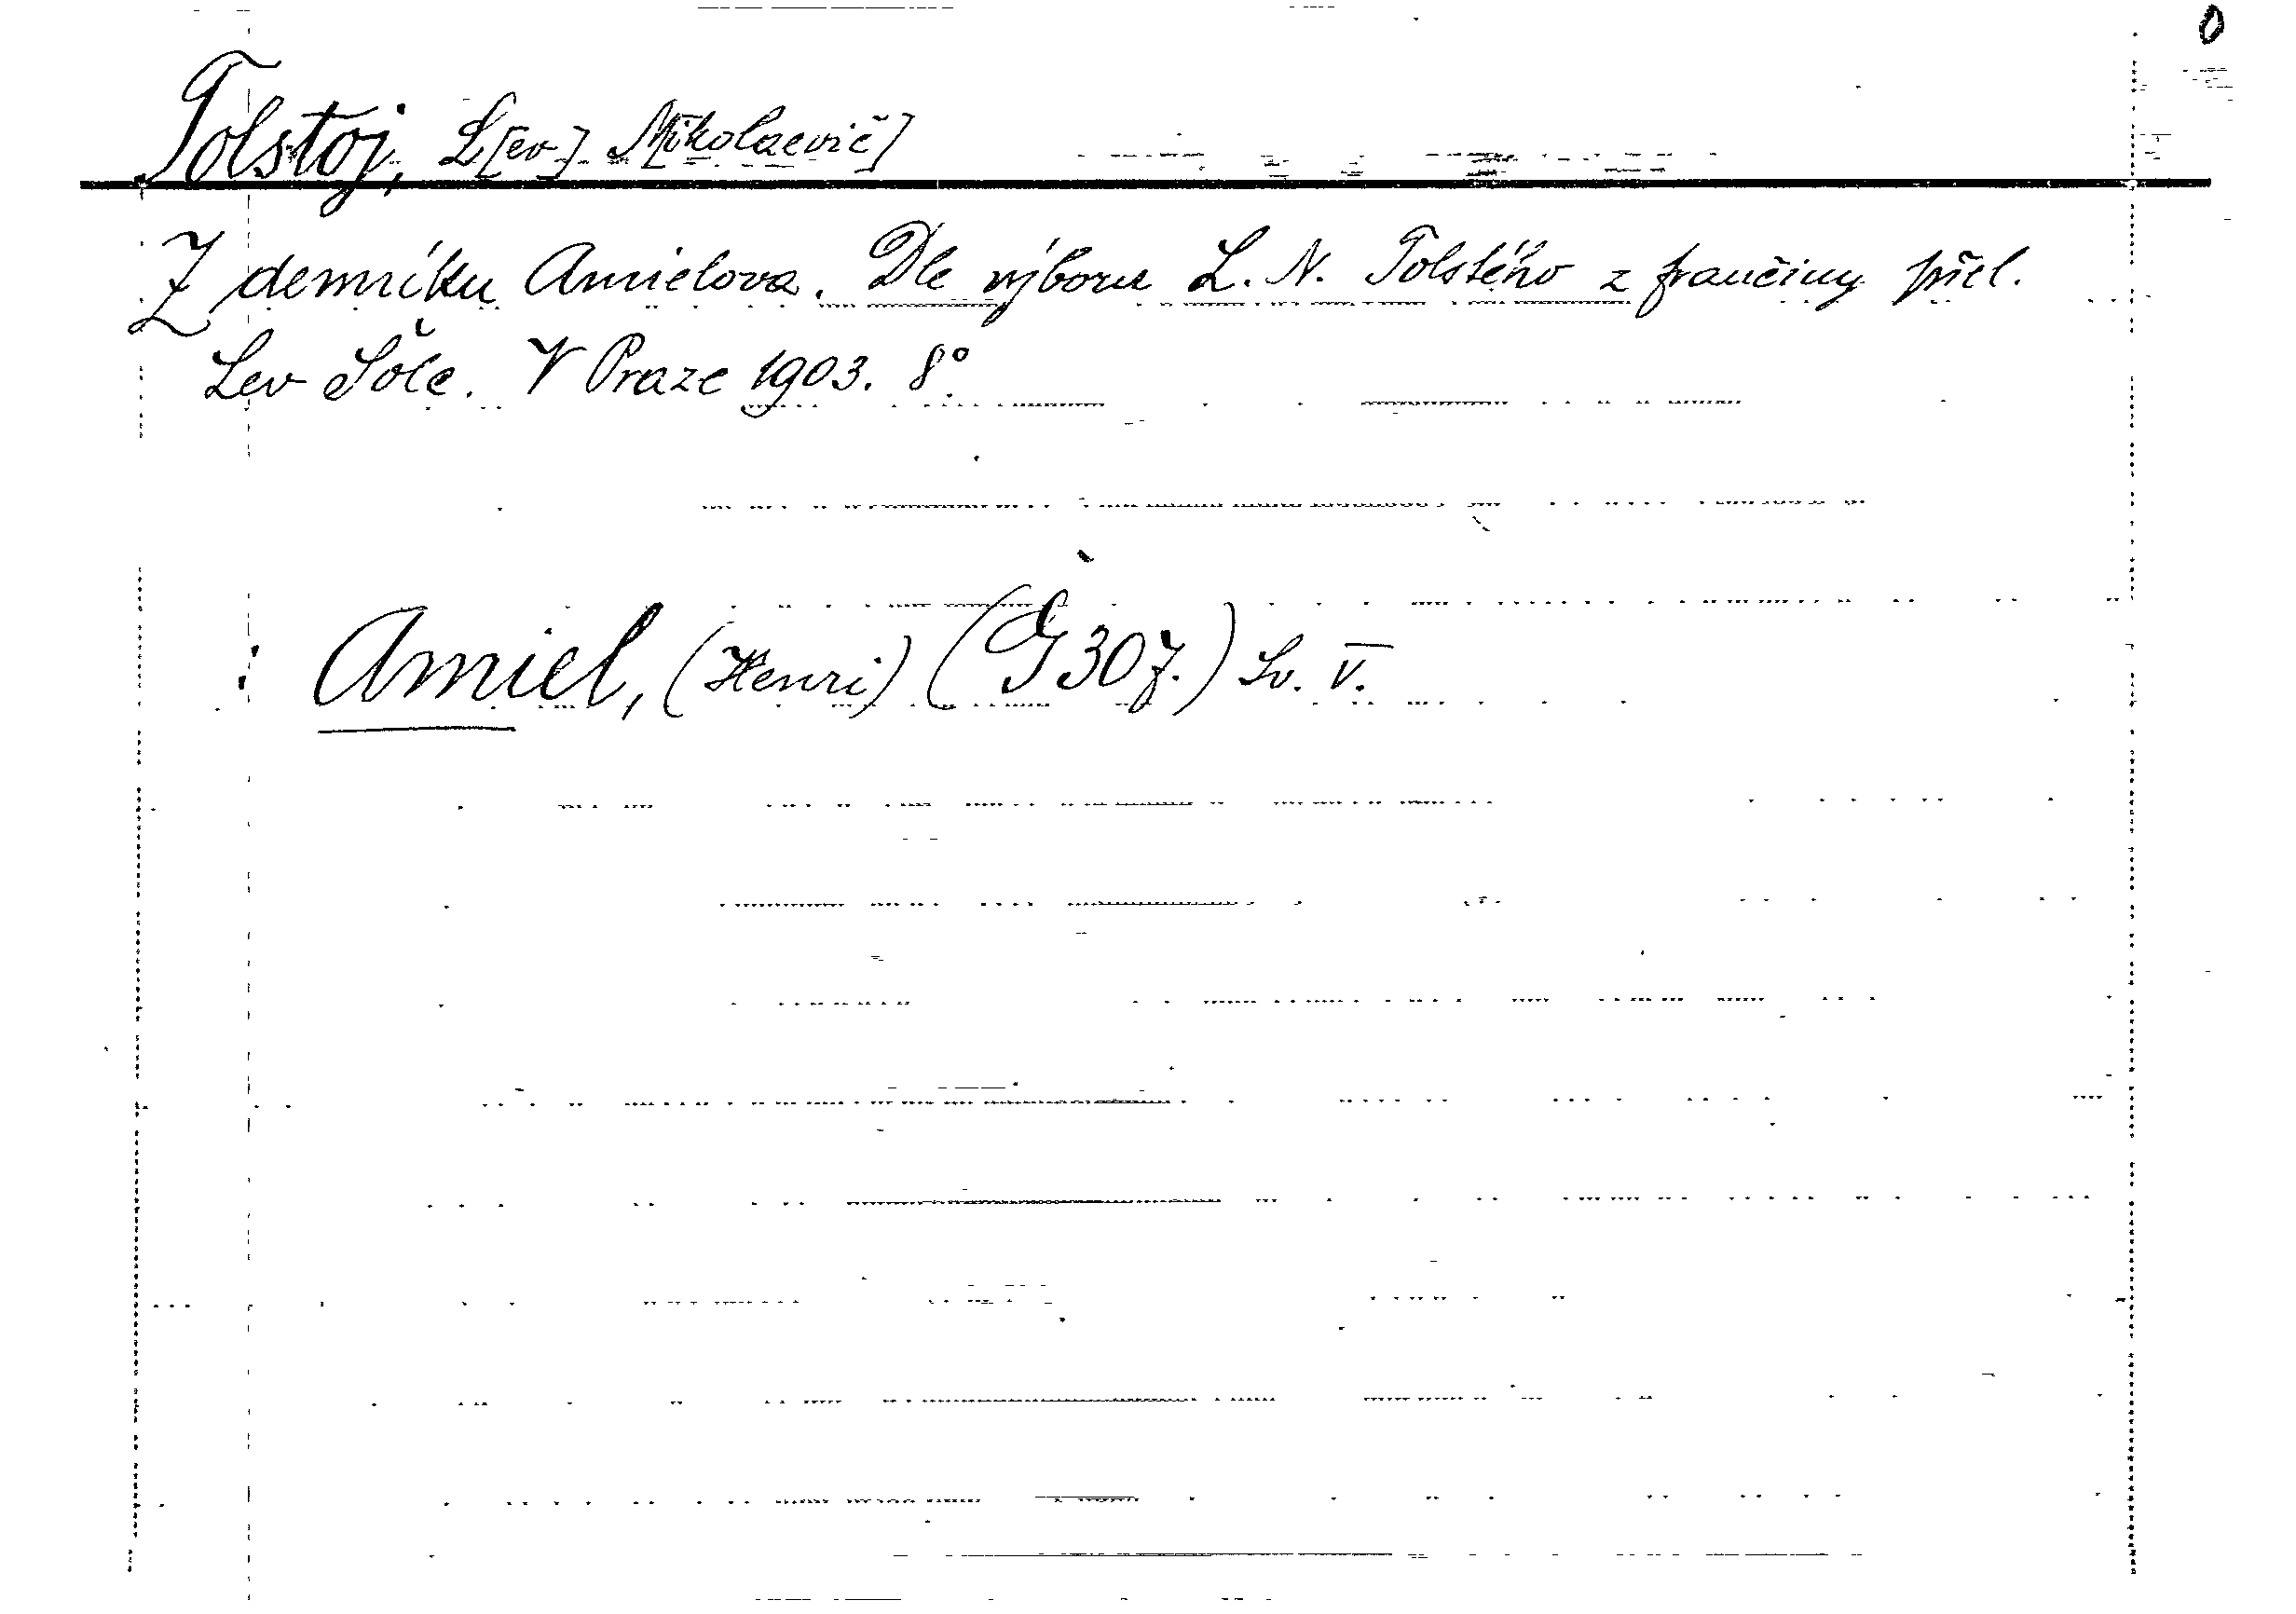 0
Tolstoj, L[ev] N[ikolaevič]
Z denníku Amielova. Dle výboru L. N. Tolstého z frančiny přel.
Lev Šolc. V Praze 1903. 8°.
: Amiel, (Henri) (G 307.) Sv. V.